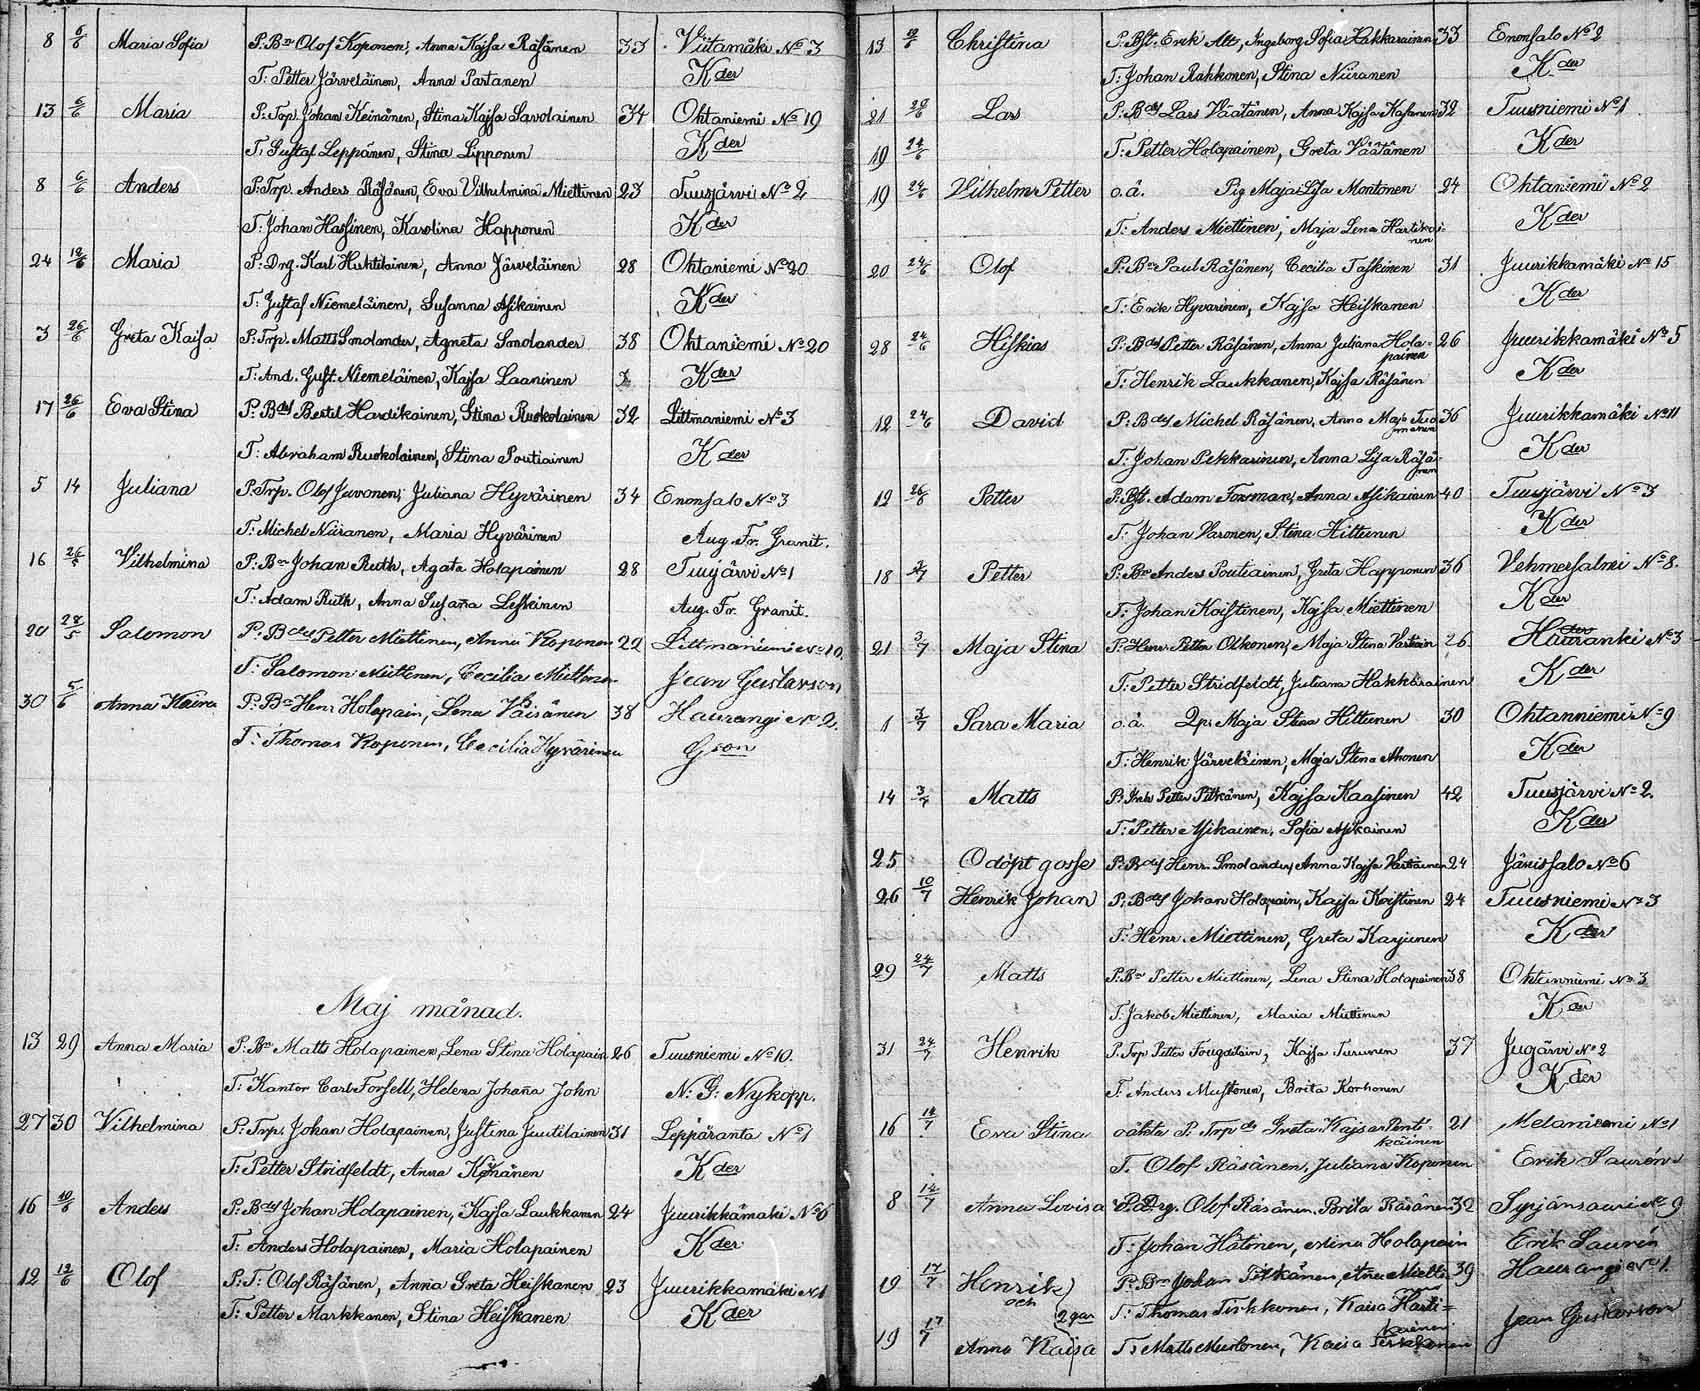 8 6/6 Maria Sofia P: Bn Olof Koponen, Anna Kajsa Räsänen 33 Viitamäki No 3
T: Petter Järveläinen, Anna Partanen Kder
13 6/6 Maria P: Torp. Johan Keinänen, Stina Kajsa Savolainen 34 Ohtaniemi No 19
T: Gustaf Leppänen, Stina Lipponen Kder
8 6/6 Anders P: Trp. Anders Räsänen, Eva Vilhelmina Miettinen 23 Tuusjärvi No 2
T: Johan Hassinen, Karolina Happonen Kder
24 12/6 Maria P: Drg. Karl Huhtilainen, Anna Järveläinen 28 Ohtaniemi No 20
T: Gustaf Niemeläinen, Susanna Asikainen Kder
3 26/6 Greta Kaisa P: Trp. Matts Smolander, Agneta Smolander 38 Ohtaniemi No 20
T: And. Gust. Niemeläinen, Kajsa Laaninen Kder
17 26/6 Eva Stina P: Bdsf Bertil Hardikainen, Stina Ruokolainen 32 Littmaniemi No 3
T: Abraham Ruokolainen, Stina Poutiainen Kder
5 14 Juliana P: Trp. Olof Juvonen, Juliana Hyvärinen 34 Enonsalo No 3
T: Michel Niiranen, Maria Hyvärinen Aug. Fr. Granit.
16 26/5 Vilhelmina P: Bn Johan Ruth, Agata Holapainen 28 Tuusjärvi No 1
T: Adam Ruth, Anna Susaña Leskinen Aug. Fr. Granit.
20 28/5 Salomon P: Bdsf Petter Miettinen, Anna Koponen 29 Litmaniemi No 10.
T: Salomon Miettinen, Cecilia Miettinen Jean Gustavson
30 5/6 Anna Kaisa P: Bn Henr Holapain, Lena Väisänen 38 Haurangi No 2.
T: Thomas Koponen, Cecilia Hyvärinen Gson
Maj månad.
13 29 Anna Maria P: Bn Matts Holapainen, Lena Stina Holapain 26 Tuusniemi No 10.
T: Kantor Carl Forsell, Helena Johaña John N: G: Nykopp.
27 30 Vilhelmina P: Trp. Johan Holapainen, Justina Juutilainen 31 Leppäranta No 1
T: Petter Stridfeldt, Anna Kähänen Kder
16 10/6 Anders P: Bdsf Johan Holapainen, Kajsa Laukkanen 24 Juurikkamäki No 6
T: Anders Holapainen, Maria Holapainen Kder
12 12/6 Olof P: T: Olof Räsänen, Anna Greta Heiskanen 23 Juurikkamäki No 1
T: Petter Markkanen, Stina Heiskanen Kder
13 Christina P: Bst. Erik Alt, Ingeborg Sofia Hakkarainen 33 Enonsalo No 2
T: Johan Rahkonen, Stina Niiranen Kder
21 Lars P: Bdsf Lars Väätänen, Anna Kajsa Kasanen 32 Tuusniemi No 1
19 24/6 T: Petter Holapainen, Greta Väätänen Kder
19 24/6 Vilhelm Petter o.ä. Pig Maja Lisa Montonen 24 Ohtaniemi No 2
T: Anders Miettinen, Maja Lena Hartikainen Kder
20 24/6 Olof P: Bn Paul Räsänen, Cecilia Taskinen 31 Juurikkamäki No 15
T: Erik Hyvärinen, Kajsa Heiskanen Kder
28 24/6 Hiskias P: Bdsf Petter Räsänen, Anna Juliana Holapainen 26 Juurikkamäki No 5
T: Henrik Laukkanen, Kajsa Räsänen Kder
12 24/6 David P: Bdsf Michel Räsänen, Anna Maja Tuomanen 36 Juurikkamäki No 11
T: Johan Pekkarinen, Anna Lisa Räsänen Kder
12 26/6 Petter P: Bst. Adam Forsman, Anna Asikainen 40 Tuusjärvi No 3
T: Johan Varonen, Stina Hiltunen Kder
18 Petter P: Bn Anders Poutiainen, Greta Happonen 36 Vehmersalmi No 8.
T: Johan Koistinen, Kajsa Miettinen Kder
21 3/7 Maja Stina P: Henr Petter Olkonen, Maja Stina 26 Hauranki No 3
T: Petter Stridfeldt, Juliana Hakkarainen Kder
1 3/7 Sara Maria o.ä. Qp: Maja Stina Hiltunen 30 Ohtanniemi No 9
T: Henrik Järveläinen, Maja Stina Ahonen Kder
14 3/7 Matts P: Petter Pitkänen, Kajsa Kaasinen 42 Tuusjärvi No 2.
T: Petter Asikainen, Sofia Asikainen Kder
25 Odöpt gosse P: Bdsf Henr. Smolander, Anna Kajsa 24 Jänissalo No 6
26 10/7 Henrik Johan P: Bdsf Johan Holapain, Kajsa Koistinen 24 Tuusniemi No 3
T: Henr. Miettinen, Greta Karjunen Kder
29 24/7 Matts P: Bn Petter Miettinen, Lena Stina Holapainen 38 Ohtanniemi No 3
T: Jakob Miettinen, Maria Miettinen Kder
31 24/7 Henrik P: Trp Petter Kajsa Turunen 37 Jugärvi No 2
T: Anders Mustonen, Brita Korhonen Kder
16 14/7 Eva Stina oäkta P. Trp ds Greta Kajsa Pentikäinen 21 Melaniemi No 1
T. Olof Räsänen, Juliana Koponen Erik Laurén
8 14/7 Anna Lovisa P. Drg. Olof Räsänen, Brita Räsänen 32 Syrjänsaari No 9
T: Johan Hätönen, Stina Holapain Erik Laurén
19 17/7 Henrik P: Bn Johan Pitkänen, Miett: 39 Haurangi No 1.
och 2gar T: Thomas Pirhkonen, Kaisa Hartikainen Jean Gustavson
19 17/7 Anna Kaisa T: Matts Mustonen, Kaisa